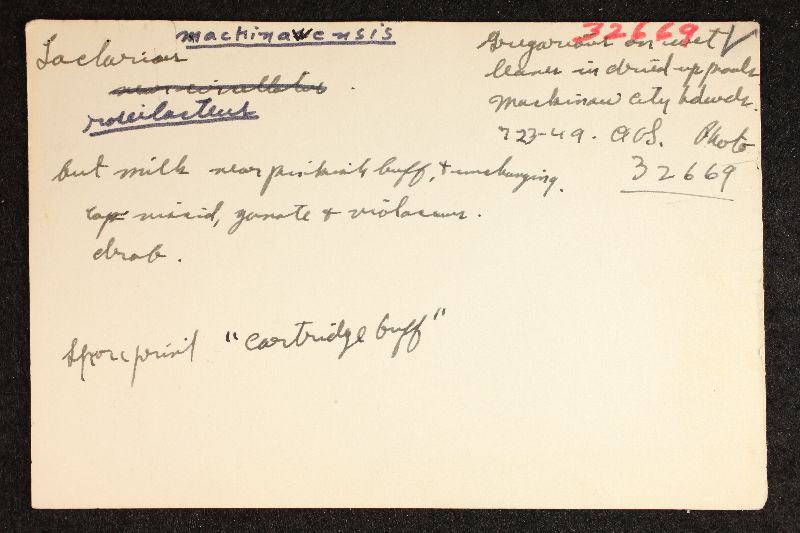 mackinawensis
32669 ✓
Lactarius
near circellatus
roseilacteus
Gregarious on wet
leaves in dried-up pools
Mackinaw City hdwds.
7-23-49. AHS. Photo
32669
but milk near pinkish buff, & unchanging.
cap viscid, zonate & violaceus
drab.
Spore print "cartridge buff"